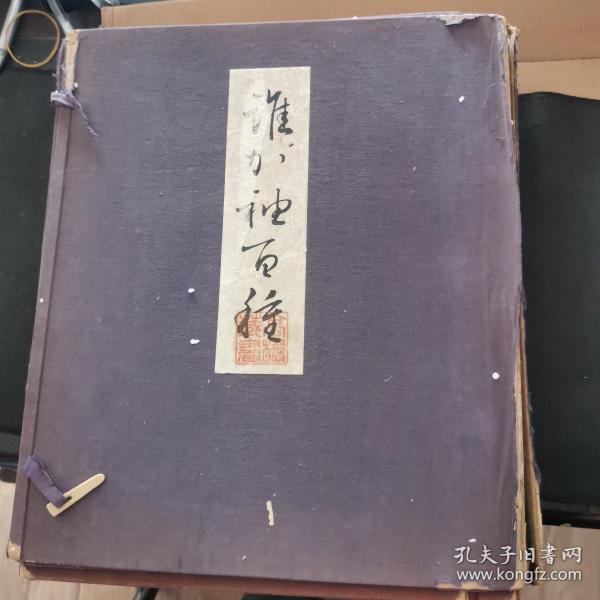 誰が袖百種
孔夫子旧书网
www.kongfz.com